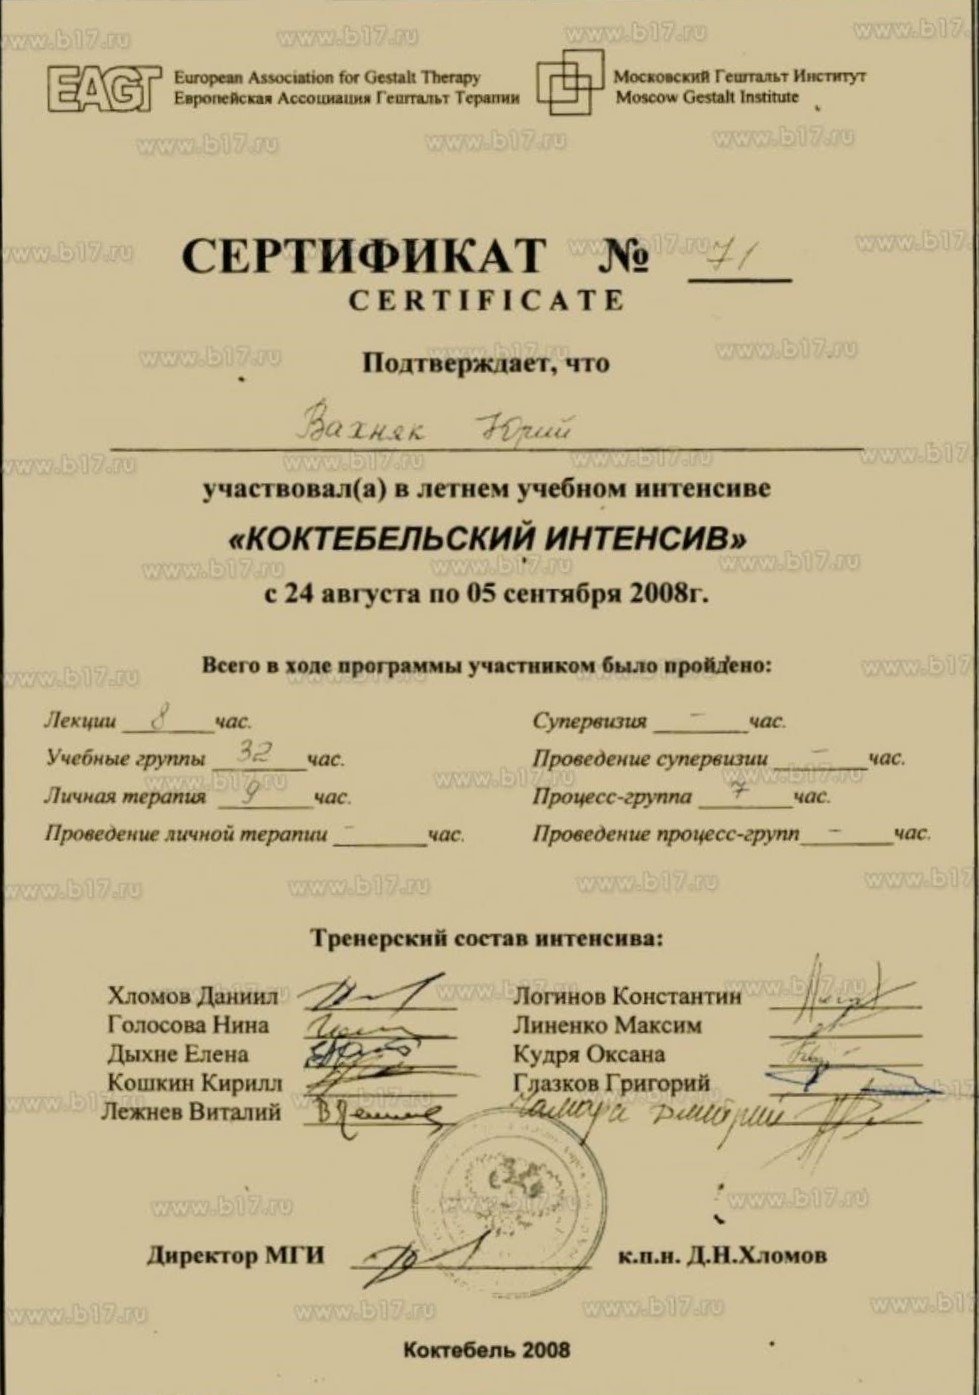 EAGT European Association for Gestalt Therapy
Европейская Ассоциация Гештальт Терапии
Московский Гештальт Институт
Moscow Gestalt Institute
СЕРТИФИКАТ № 71
CERTIFICATE
Подтверждает, что
Вахняк Юрий
участвовал(а) в летнем учебном интенсиве
«КОКТЕБЕЛЬСКИЙ ИНТЕНСИВ»
с 24 августа по 05 сентября 2008г.
Всего в ходе программы участником было пройдено:
Лекции 8 час.
Учебные группы 32 час.
Личная терапия 9 час.
Проведение личной терапии - час.
Супервизия - час.
Проведение супервизии - час.
Процесс-группа 7 час.
Проведение процесс-групп - час.
Тренерский состав интенсива:
Хломов Даниил
Голосова Нина
Дыхне Елена
Кошкин Кирилл
Лежнев Виталий
Логинов Константин
Линенко Максим
Кудря Оксана
Глазков Григорий
Дмитрий
Директор МГИ к.п.н. Д.Н.Хломов
Коктебель 2008
www.b17.ru